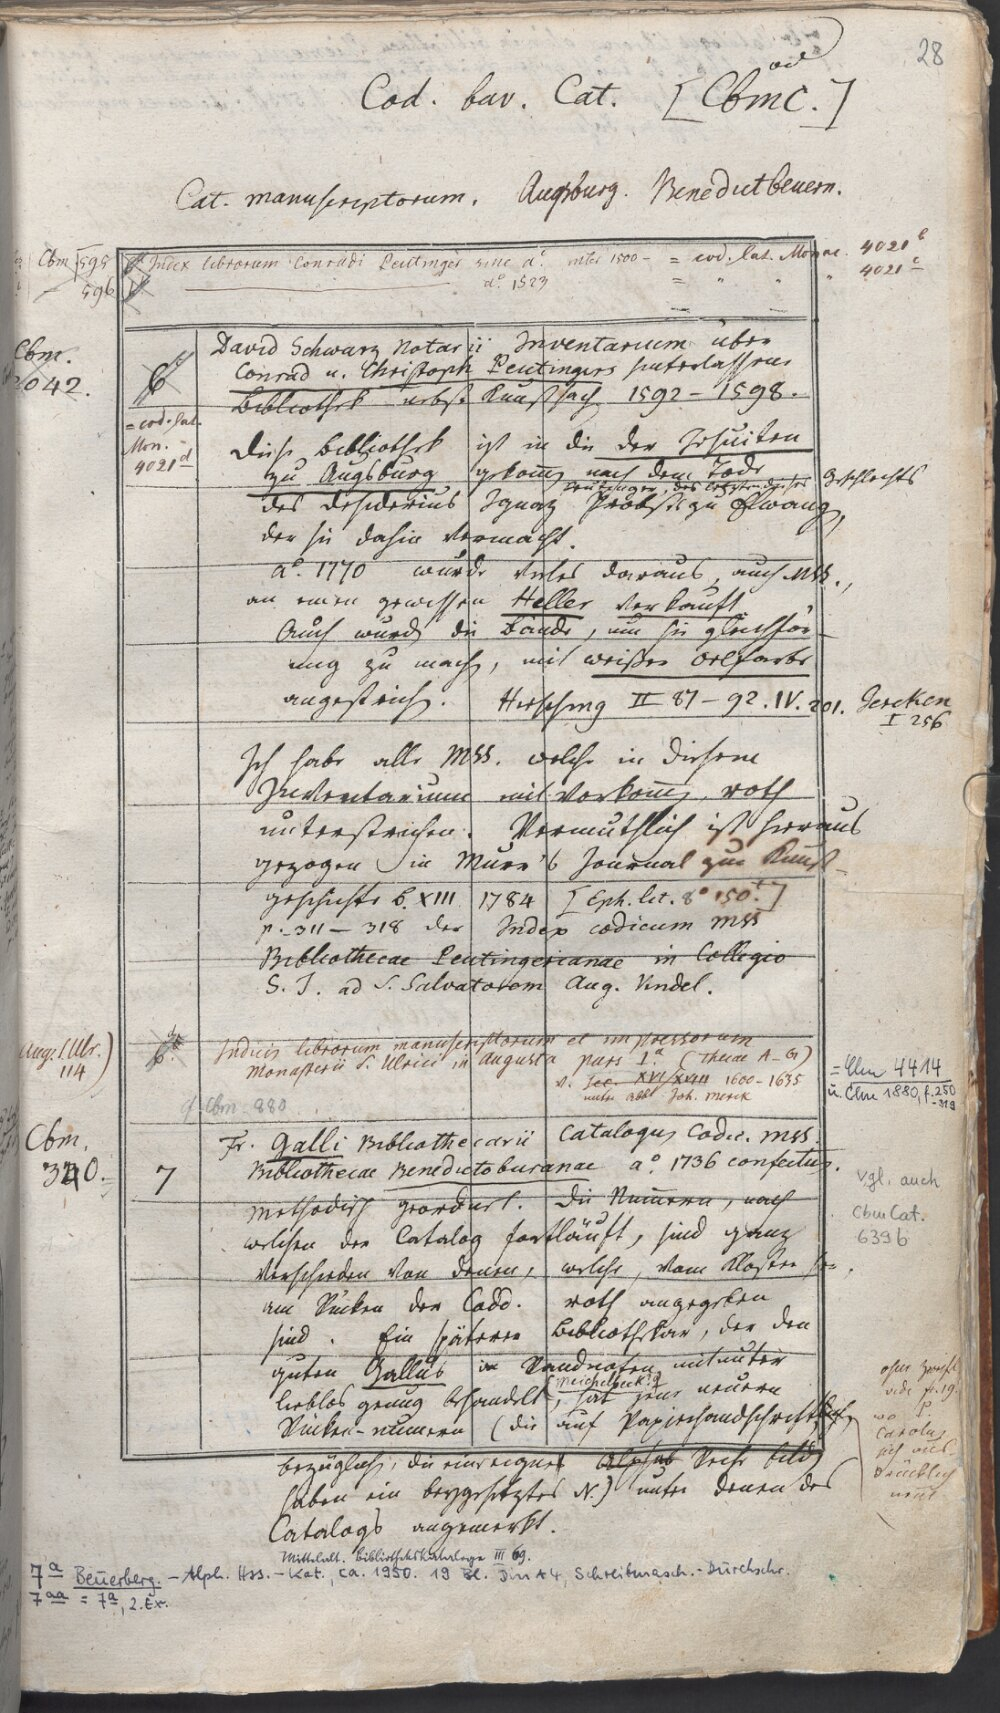 28
Cod. bav. Cat. [Cbm C.]
Cat. manuscriptorum. Augsburg. Benedictbeuern.
Cbm 595
596
Index librorum Conradi Peutinger sine a° inter 1500 - = cod. lat. Monac. 4021 b
a° 1523 = " " " 4021 c
Cbm.
2042.
= cod. lat.
Mon.
4021 d
David Schwarz Notarii Inventarium über
Conrad u. Christoph Peutingers hinterlassene
Bibliothek nebst Kunstsach 1592 - 1598.
Diese Bibliothek ist in die der Jesuiten
zu Augsburg gekom̄en nach dem Tode
Peutinger, des letzten dieses Geschlechts
des Desiderius Ignaz Probsts zu Elwang,
der sie dahin vermacht.
a°. 1770 wurde vieles daraus, auch MSS.,
an einen gewissen Heller verkauft
Auch wurd die Bände, um sie gleichför-
mig zu mach, mit weißer Oelfarbe
angestrich. Hirsching II 87 - 92. IV. 201. Gercken
I 256
Ich habe alle MSS. welche in diesem
Inventarium mit vorkom̄, roth
unterstrichen. Vermuthlich ist hieraus
gezogen in Murr's Journal zur Kunst-
geschichte B. XIII 1784 [Eph. lit. 8° 150 t]
p. 311 - 318 der Index codicum MSS
Bibliothecae Peutingerianae in Collegio
S. J. ad S. Salvatorem Aug. Vindel.
Aug. S. Ulr.
114
Indicis librorum manuscriptorum et impressorum
Monasterii S. Ulrici in Augusta pars 1.a (Thecae A-G)
v. Sec. XVI/XVIII 1600 - 1635
unter Abt Joh. Merck
= Clm 4414
u. Clm 1880, f. 250
-319
cf Cbm. 880
Cbm.
340.
7
Fr. Galli Bibliothecarii Catalogus Codic. MSS.
Bibliothecae Benedictoburanae a°. 1736 confectus.
vgl. auch
Cbm Cat.
639b
Methodisch geordnet. Die Num̄ern, nach
welchen der Catalog fortläuft, sind ganz
verschieden von denen, welche, vom Kloster her,
am Rücken der Codd. roth angegeben
sind. Ein späterer Bibliothekar, der den
guten Gallus in Randnoten mitunter
lieblos genug behandelt, hat jene neuern
Rücken-num̄ern (die auf Papierhandschrift
bezüglich, die eine eigne Reihe bild
haben ein beygesetztes N.) unter denen des
Catalogs angemerkt.
ohne Zweifel
Carolus
sich aus-
drücklich
nennt
Mittelalt. Bibliothekskataloge III 69.
7a Beuerberg. - Alph. Hss. - Kat., ca. 1950. 19 Bl. Din A4, Schreibmasch.-Durchschr.
7aa = 7a, 2. Ex.